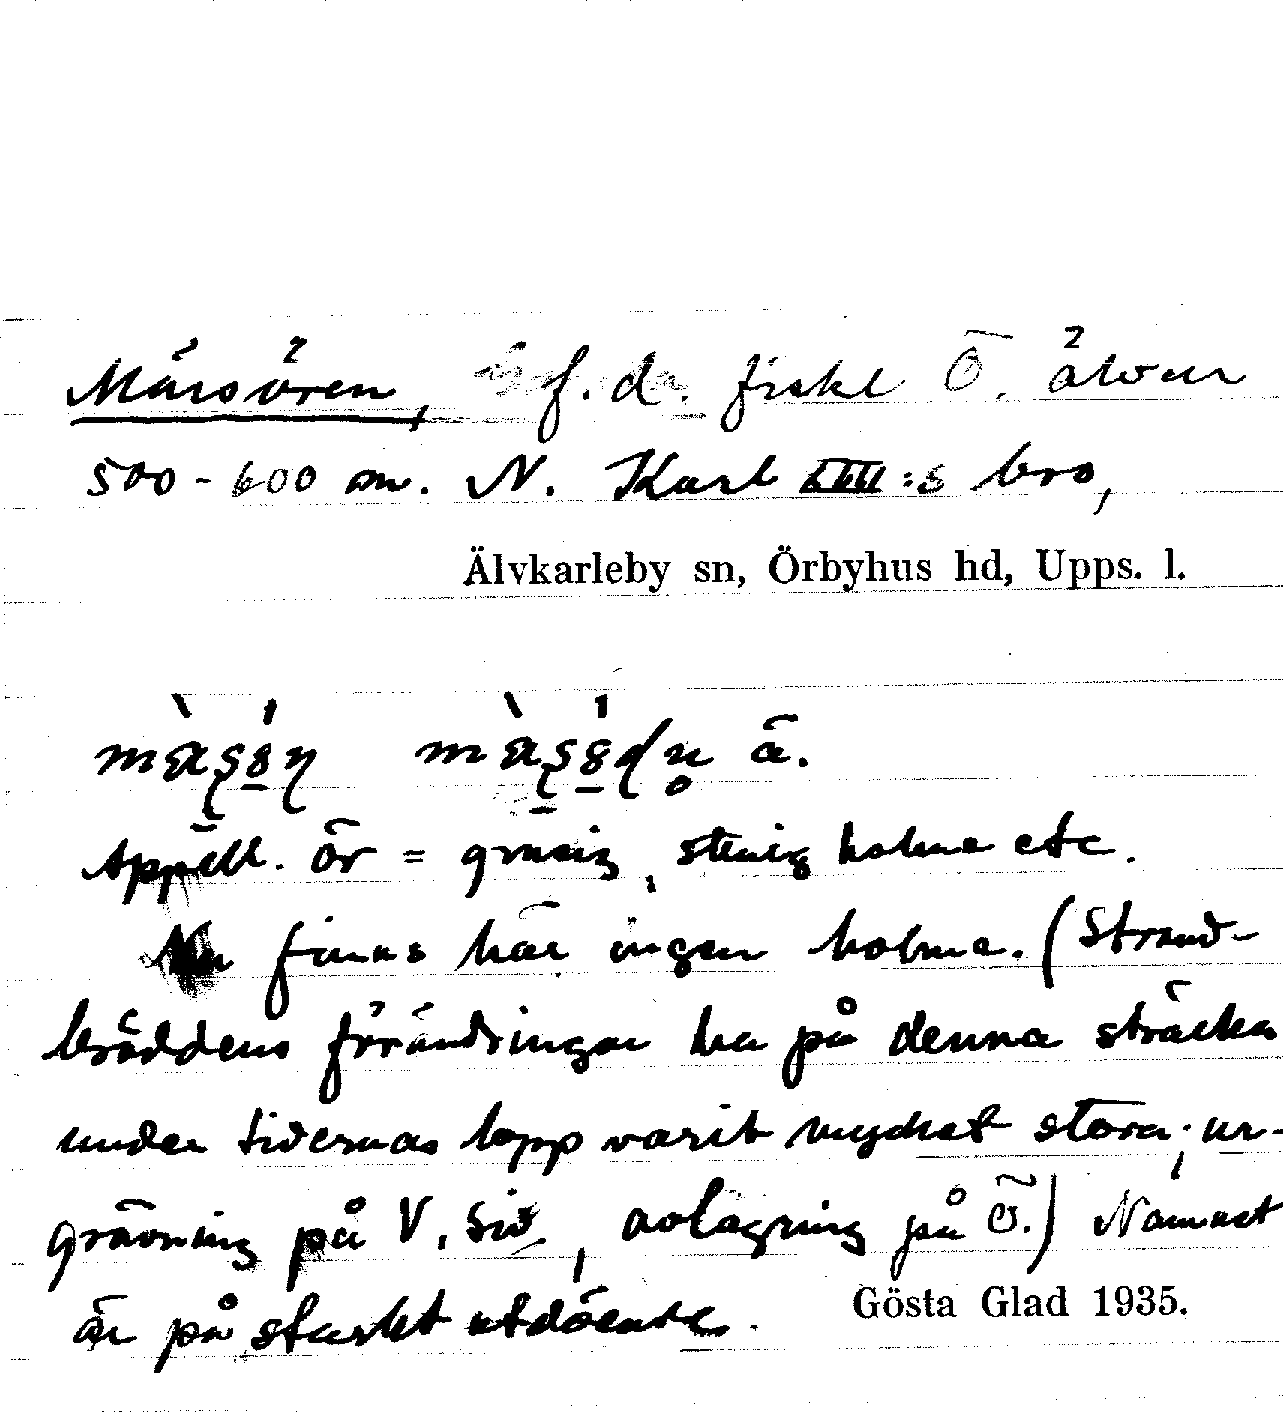 Mårsören, f.d. fiske Ö. älven
500-600 m. N. Karl XIII:s bro,
Älvkarleby sn, Örbyhus hd, Upps. l.
ä.
Appell. ör = grusig, stenig holme etc.
Nu finns här ingen holme. (Strand-
bräddens förändringar ha på denna sträcka
under tidernas lopp varit mycket stora; ur-
grävning på V. sid, avlagring på Ö.) Namnet
är på starkt utdöende.
Gösta Glad 1935.